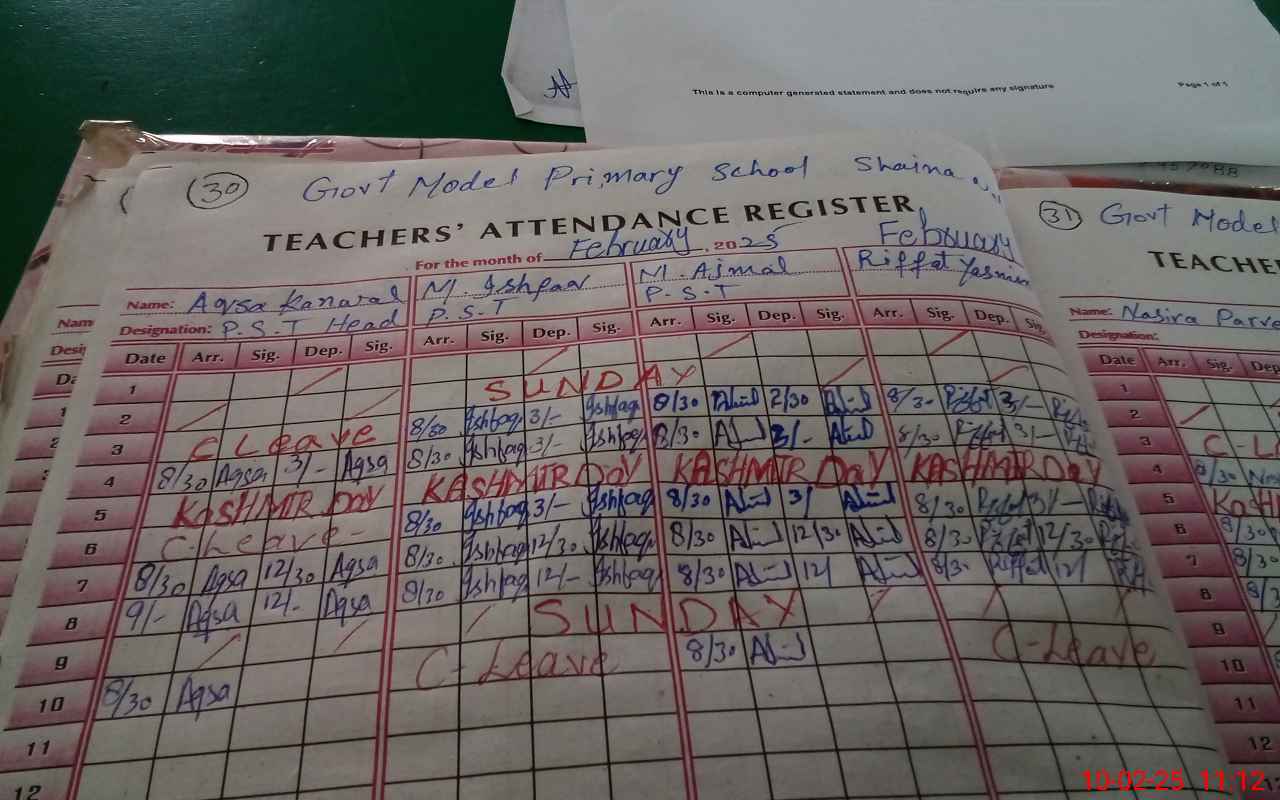 This is a computer generated statement and does not require any signature
Page 1 of 1
30 Govt Model Primary School Shaina
TEACHERS' ATTENDANCE REGISTER
For the month of February, 2025 February
Name: Aqsa Kanwal M. Ishfaq M. Ajmal Riffat Yasmin
Designation: P.S.T Head P.S.T P.S.T
Date Arr. Sig. Dep. Sig. Arr. Sig. Dep. Sig. Arr. Sig. Dep. Sig. Arr. Sig. Dep. Sig.
1
2 SUNDAY
3 C Leave 8/30 Ishfaq 3/- Ishfaq 8/30 2/30 8/30 Riffat 3/-
4 8/30 Aqsa 3/- Aqsa 8/30 Ishfaq 3/- Ishfaq 8/30 3/- 8/30 Riffat 3/-
5 KASHMIR DAY KASHMIR DAY KASHMIR DAY KASHMIR DAY
6 C-Leave- 8/30 Ishfaq 3/- Ishfaq 8/30 3/ 8/30 Riffat 3/-
7 8/30 Aqsa 12/30 Aqsa 8/30 Ishfaq 12/30 Ishfaq 8/30 12/30 8/30 Riffat 12/30
8 9/- Aqsa 12/- Aqsa 8/30 Ishfaq 12/- Ishfaq 8/30 12/ 8/30 Riffat 12/
9 SUNDAY
10 8/30 Aqsa C-Leave 8/30 C-Leave
11
12
31 Govt Model
TEACHE
Name: Nasira Parve
Designation:
Date Arr. Sig. Dep
1
2
3 C-L
4 8/30
5 KASH
6 8/30
7 8/30
8 8/3
9
10
11
12
10-02-25 11:12